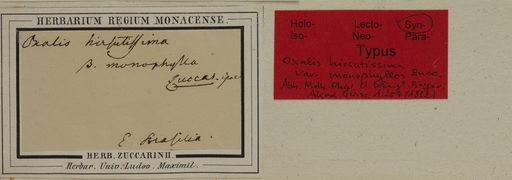 HERBARIUM REGIUM MONACENSE.
Oxalis hirsutissima
β. monophylla
Zuccar.
E Brasilia.
HERB. ZUCCARINII.
Herbar. Univ. Ludov. Maximil.
Holo- Lecto- Syn-
Iso- Neo- Para-
Typus
Oxalis hirsutissima
var. monophyllos Zucc.
Abh. Math.-Phys. Cl. Königl. Bayer.
Akad. Wiss.